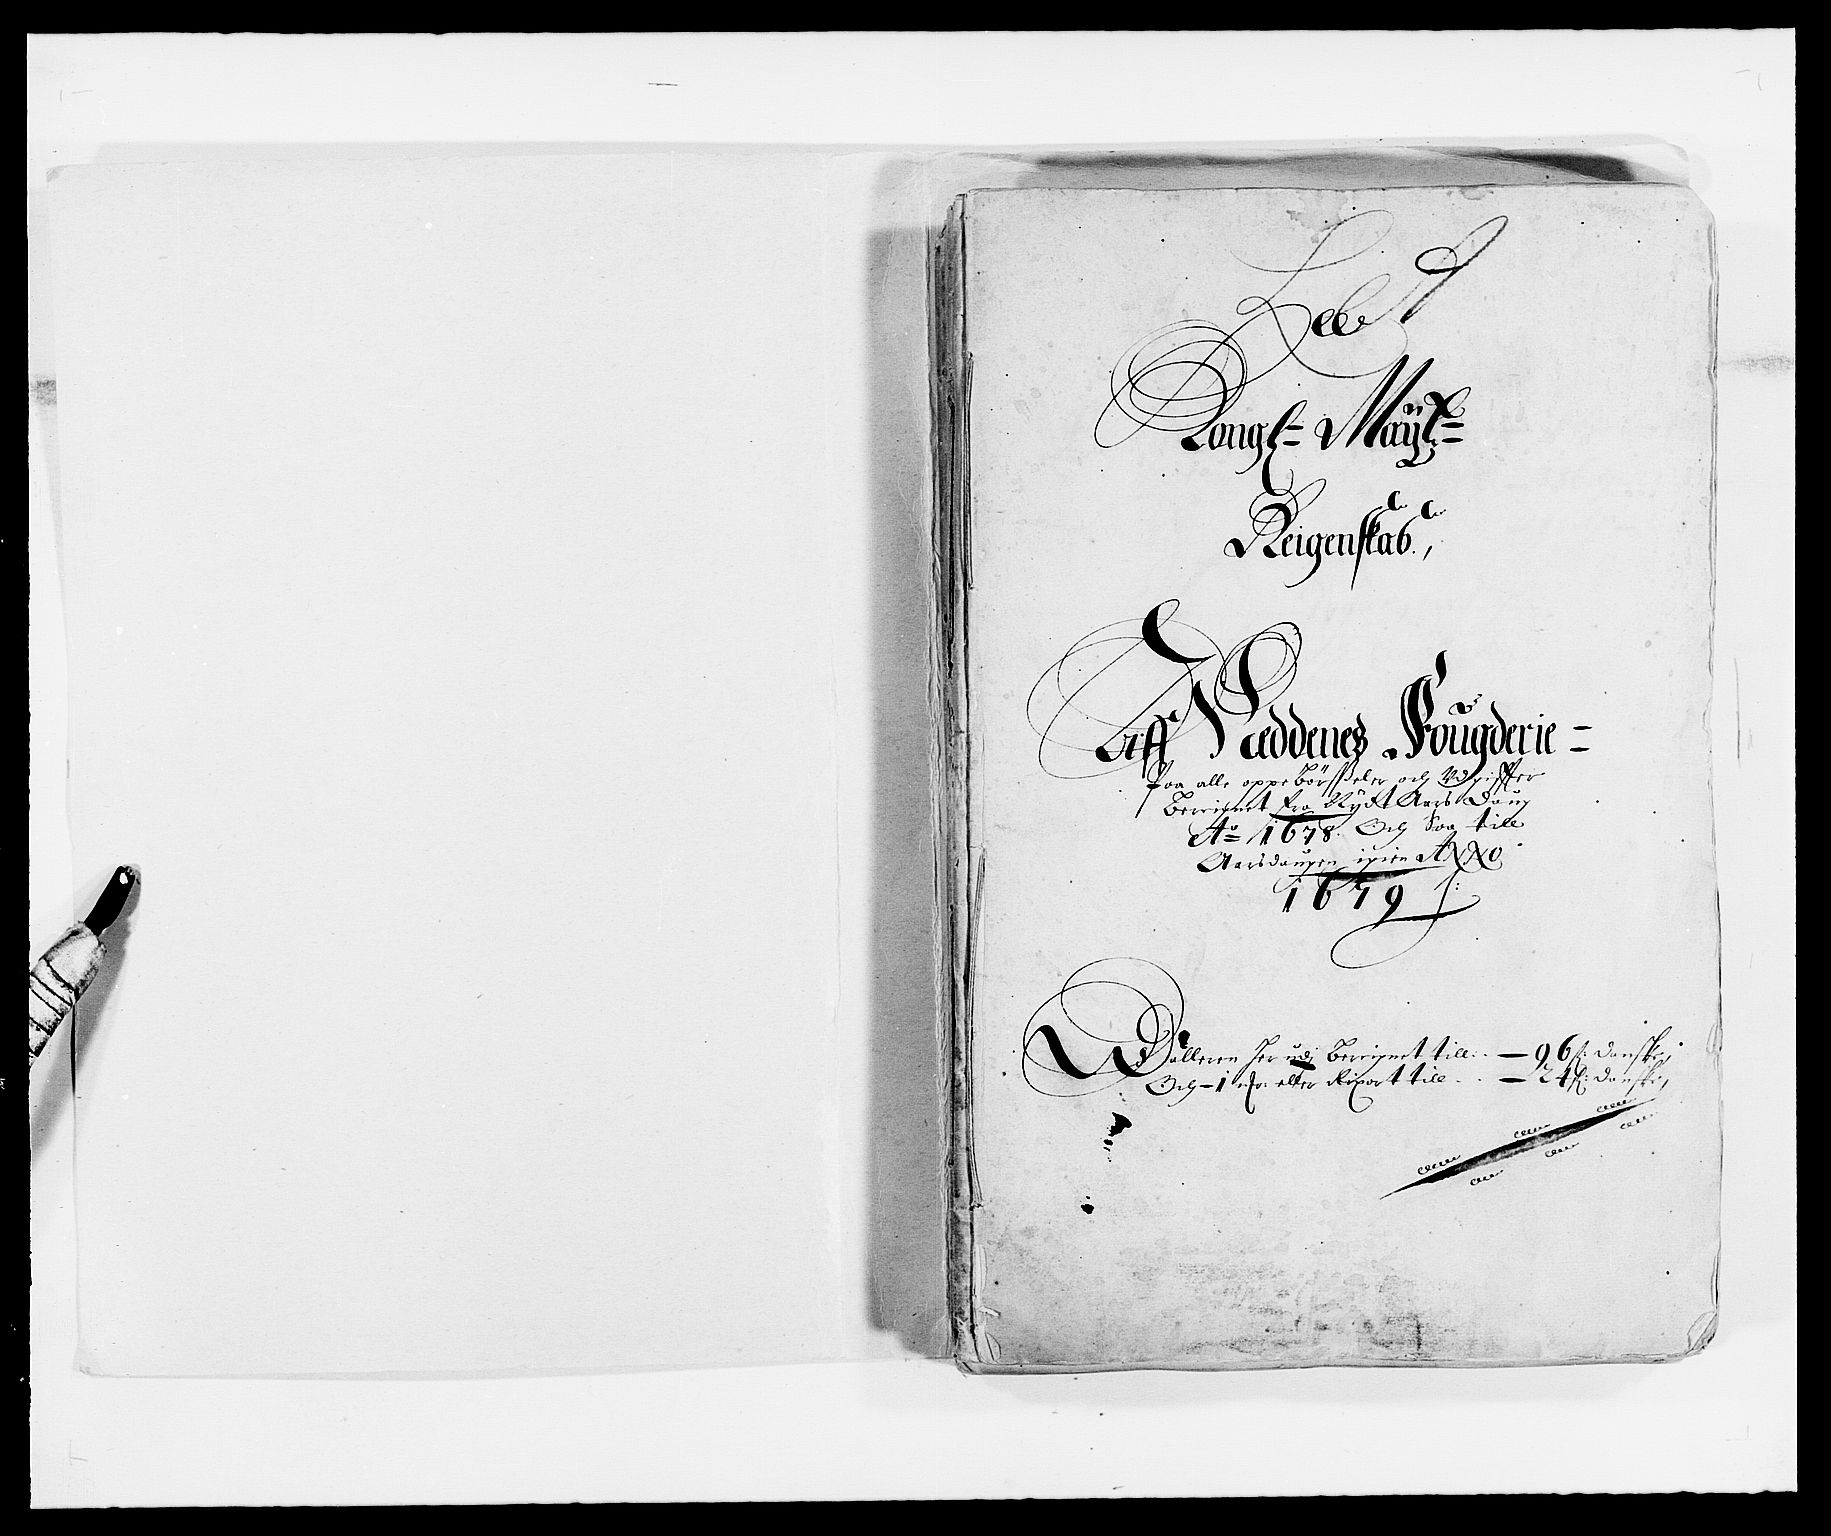 Kongl= Maÿtz=
Reigenskab,
Aff Næddenes Fougderie =
Paa alle oppebørsseler och Udgiffter
Berignet fra Nyдt Aars Daug
Ao= 1678. Och Saa till
Aarsdaugen igien ANNO
1679
Dalleren her udj Berignet till.. — 96 s: danske,
Och – 1 eller Rixort till . . — 24 s: danske,